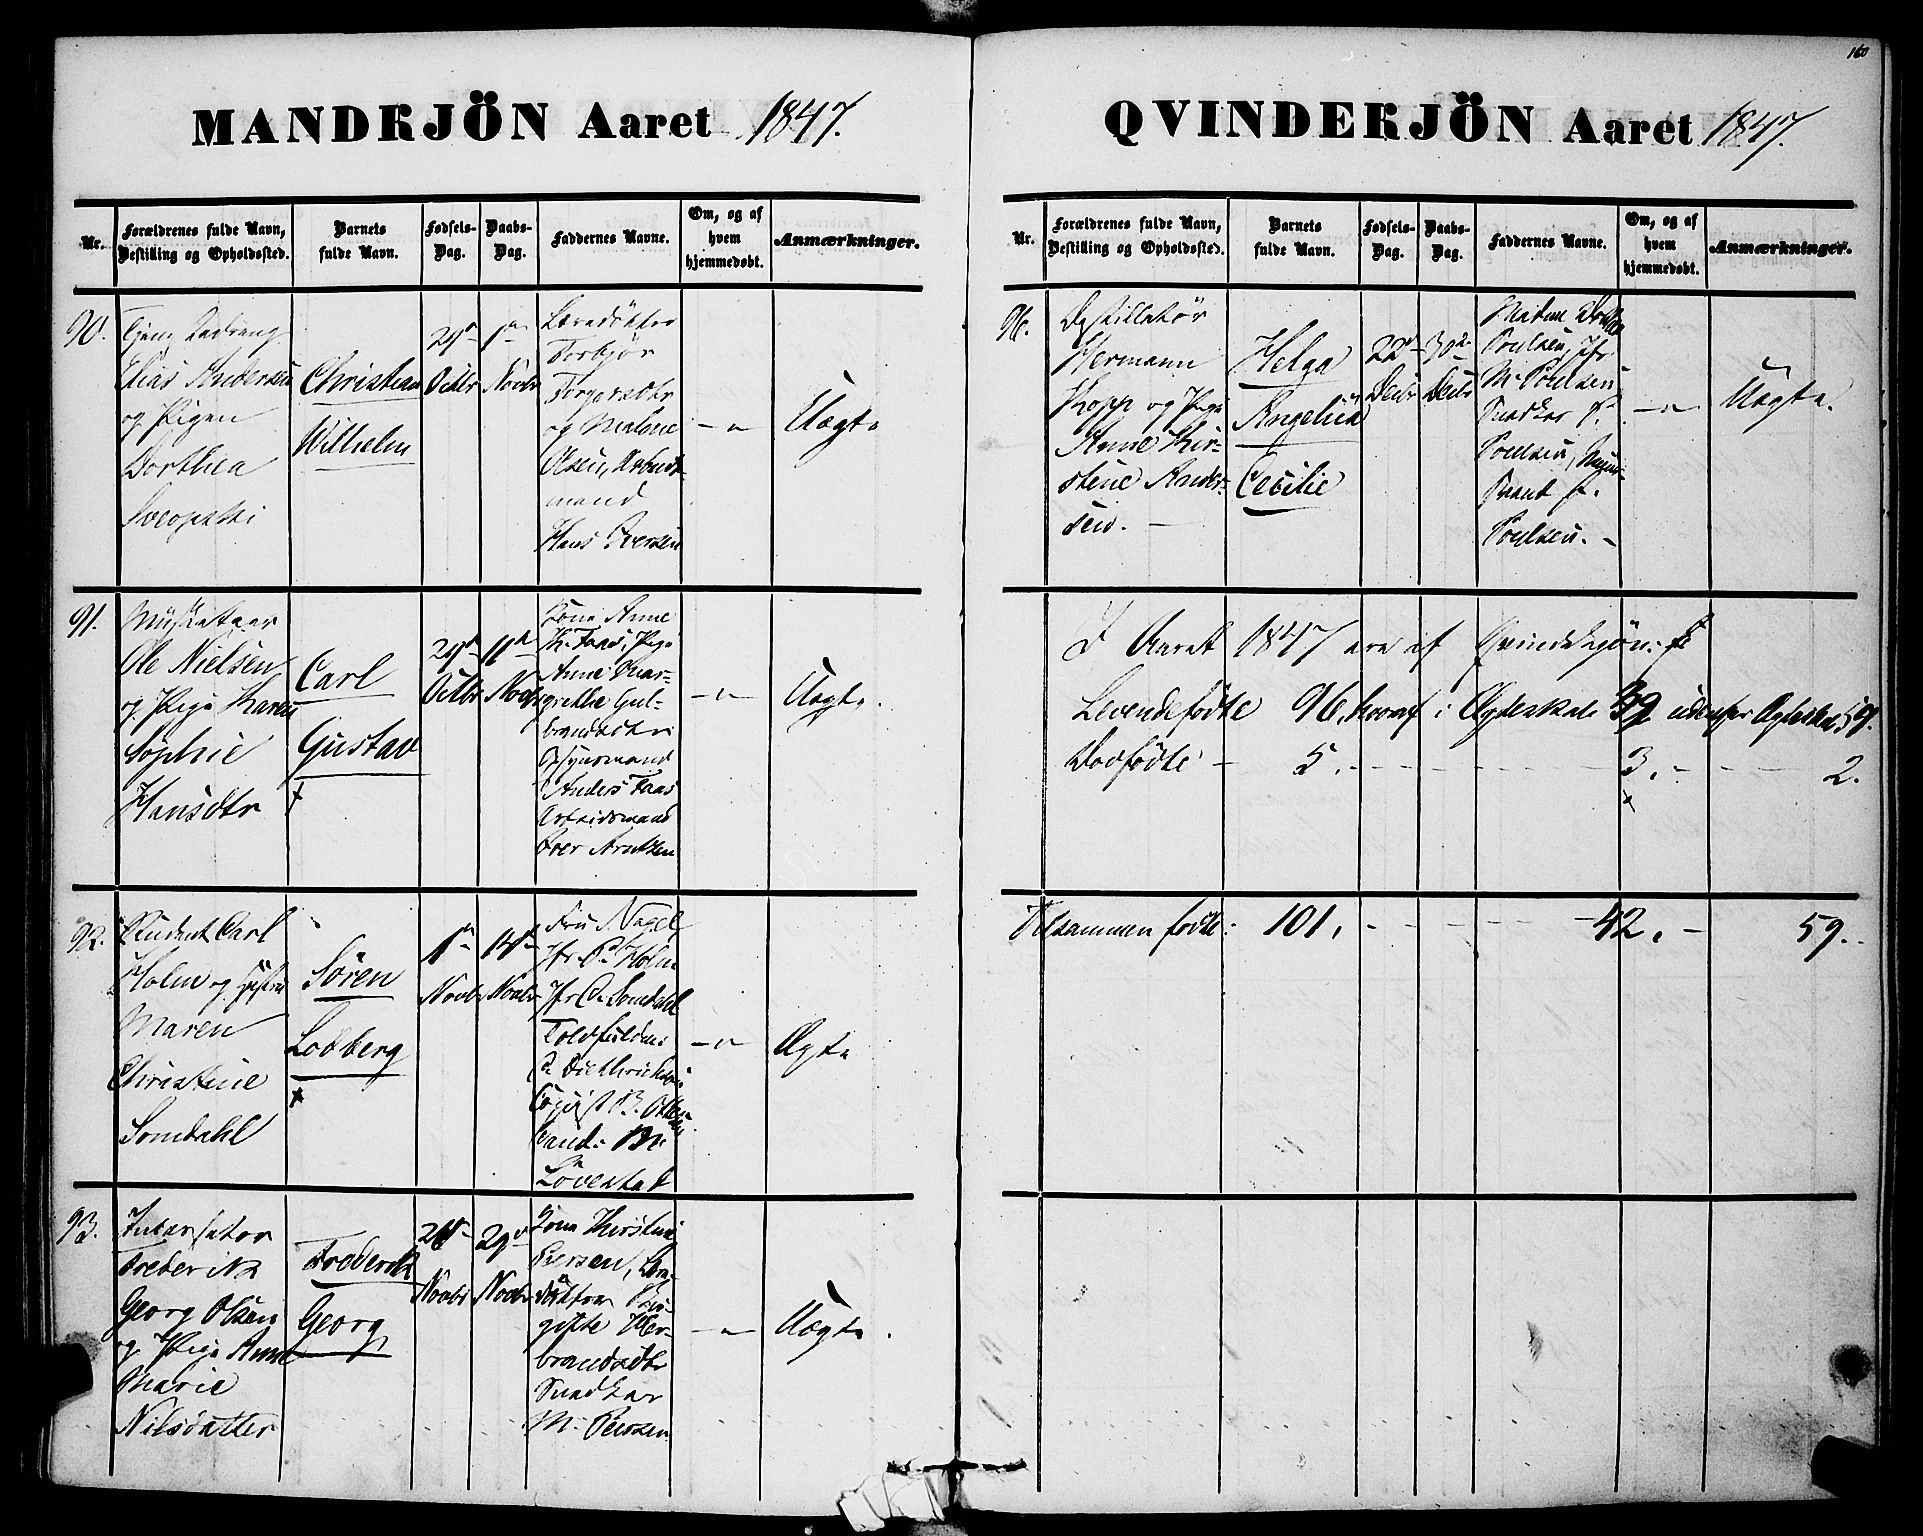 MANDKJÖN Aaret 1847.
Nr.
Forældrenes fulde Navn,
Bestilling og Opholdssted.
Barnets
fulde Navn.
Fødsels-
Dag.
Daabs-
Dag.
Faddernes Navne.
Om, og af
hvem
hjemmedøbt.
Anmærkninger.
90.
Elias Andersen
og Pigen
Dorthea
Christian
Wilhelm
29de
Octbr
1ste
Novbr
Torbjør
og Malene
Olsen, Arbeids-
mand
Hans Iversen
- " -
Uægte
91.
Musketeer
Ole Nielsen
og Pige Karen
Sophie
Hansdtr
Carl
Gustav
+
29de
Octbr
11te
Novbr
Kone Anne
K. Faas, Pige
Anne Mar-
grethe Gul-
brandsdtr
Opsynsmand
Anders Faas
Arbeidsmand
Iver Arntzen
- " -
Uægte.
92.
Student Carl
Holm og Hustru
Maren
Christine
Somdahl
Sören
Lodberg
+
Novbr
14de
Novbr
Fru S. Nagel
Jfr C. Holm
Jfr C. Somdahl
Cand. M.
Lövestad
- " -
Ægte
93.
Frederik
Georg Olsen
og Pige Anne
Marie
Nilsdatter
Frederik
Georg
Novbr
29de
Novbr
Kone Kirstine
Persen, Læra-
döttrer Bir-
gitte Her-
brandsdtr
Snedker
M. Persen
- " -
Uægte.
160
QVINDEKJÖN Aaret 1847.
Nr.
Forældrenes fulde Navn,
Bestilling og Opholdssted.
Barnets
fulde Navn.
Fødsels-
Dag.
Daabs-
Dag.
Faddernes Navne.
Om, og af
hvem
hjemmedøbt.
Anmærkninger.
96.
Destillatör
Hermann
Kopp og Pige
Anne Kir-
stine Ander-
sen. -
Helga
Angelica
Cecilie
22de
Decbr
30te
Decbr
Madme
Poulsen, Jfr
M. Poulsen
Snedker P.
Poulsen,
Poulsen. -
- " -
Uægte.
I Aaret 1847 ere af Qvindekjön:
Levendefödte 96, hvoraf i Ægteskab 39 udenfor Ægteskab 57.
Dödfödte - 5. - - - - - 3. - - - 2.
+
Tilsammen födte: 101. - - - - 42. - 59.